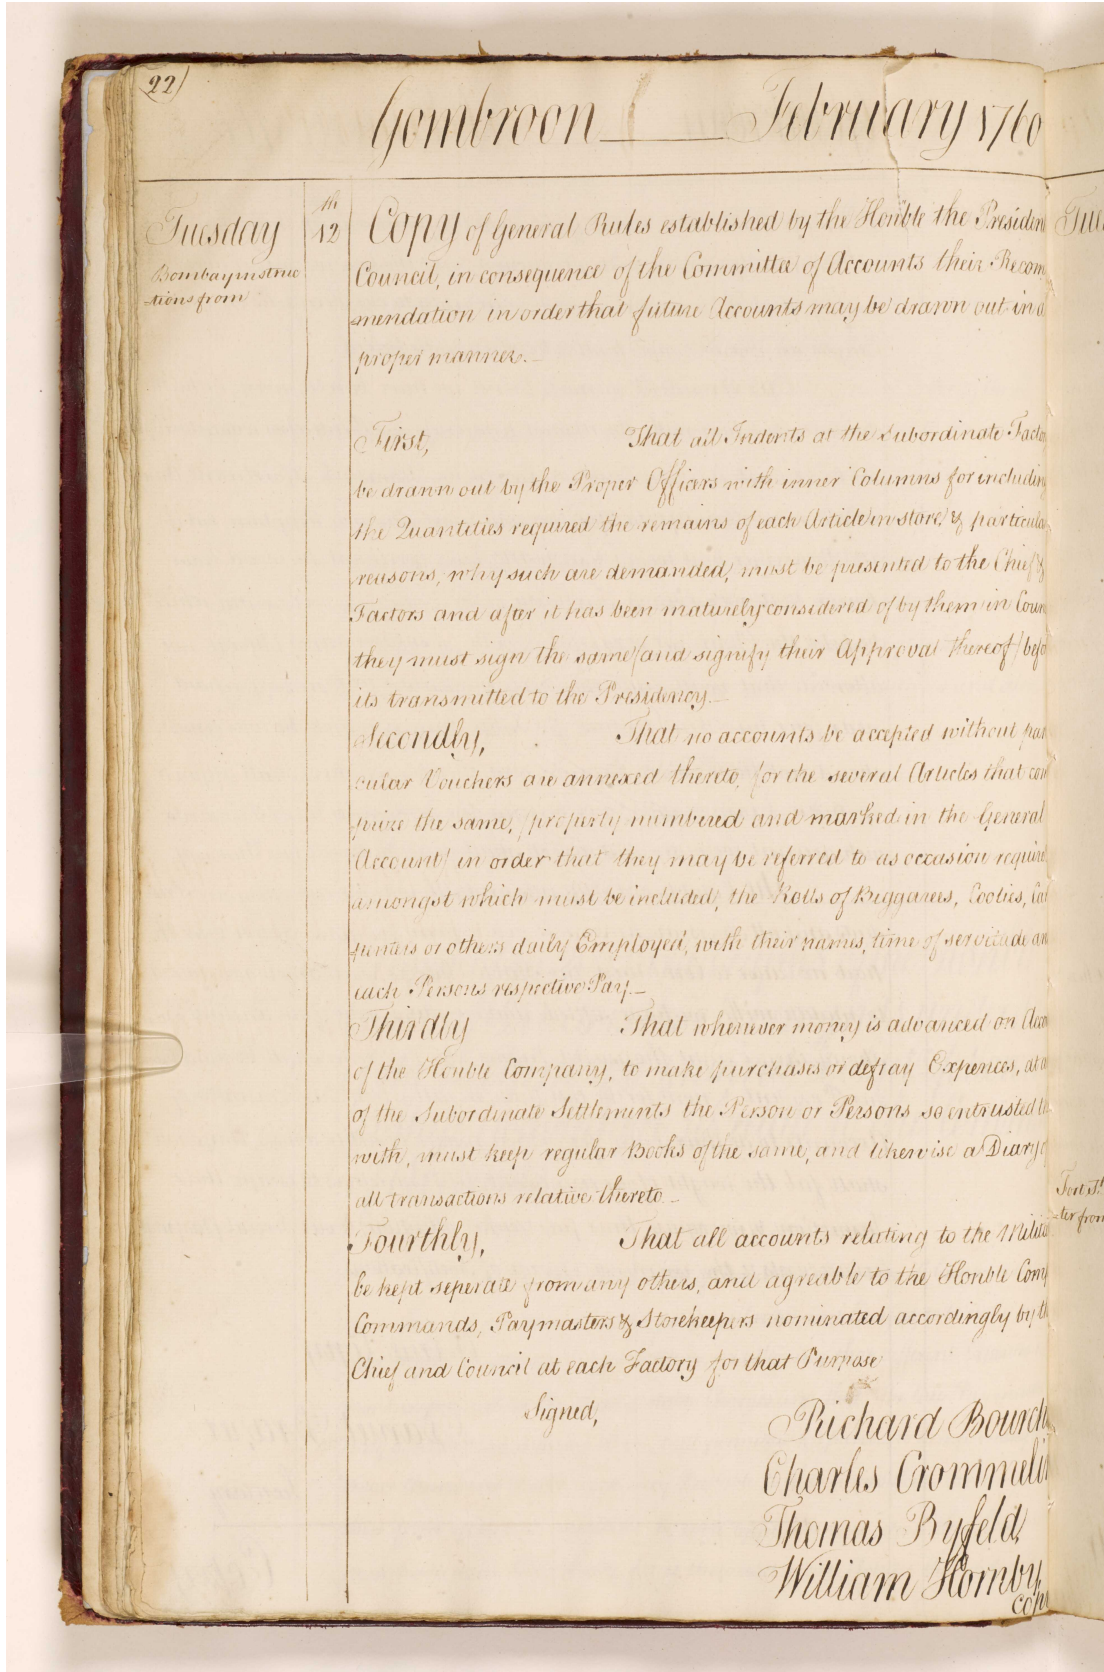 22
Gombroon February 1760
Tuesday
Bombay instruc
-tions from
th
12
Copy of General Rules established by the Honble the Presiden
Council, in consequence of the Committee of Accounts their Recom
mendation in order that future Accounts may be drawn out in a
proper manner.
First, That all Indents at the Subordinate Facto
be drawn out by the Proper Officers with inner Columns for including
the Quantities required the remains of each Article in store, & particular
reasons, why such are demanded, must be presented to the Chief &
Factors and after it has been maturely considered of by them in Coun
they must sign the same (and signify their Approval thereof) befo
its transmitted to the Presidency
Secondly, That no accounts be accepted without par
cular Vouchers are annexed thereto, for the several Articles that com
prize the same, (properly numbered and marked in the General
Account) in order that they may be referred to as occasion require
amongst which must be included, the Rolls of Biggarees, Coolies, Car
penters or others daily Employed, with their names, time of servitude an
each Persons respective Pay
Thirdly That whenever money is advanced on Acco
of the Honble Company, to make purchases or defray Expences, at a
of the Subordinate Settlements the Person or Persons so entrusted th
with, must keep regular Books of the same, and likewise a Diary of
all transactions relative thereto
Fourthly, That all accounts relating to the Milita
be kept seperate from any others, and agreable to the Honble Comp
Commands, Paymasters & Storekeepers nominated accordingly by th
Chief and Council at each Factory for that Purpose
Signed,
Richard Bourch
Charles Crommelin
Thomas Byfeld,
William Hornby,
Tues
Fort St
-ter from